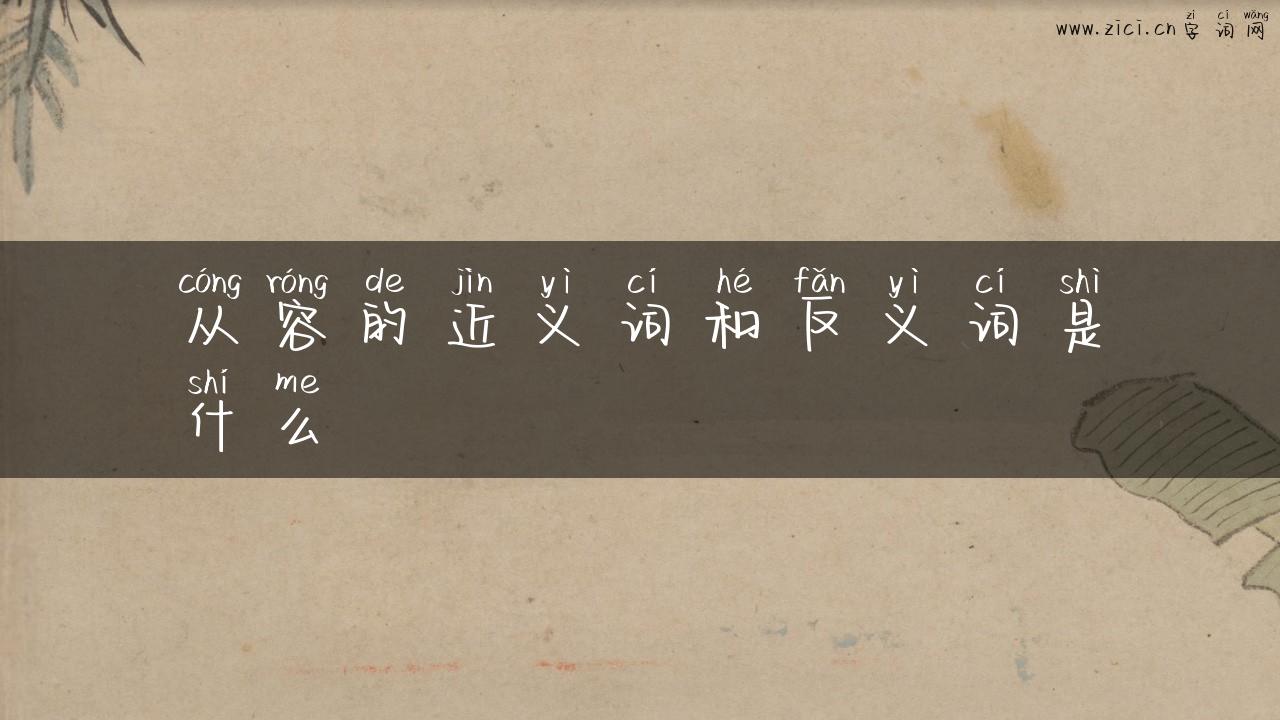 zì cí wǎng
www.zici.cn 字 词 网
cóng róng de jìn yì cí hé fǎn yì cí shì
从 容 的 近 义 词 和 反 义 词 是
shí me
什 么